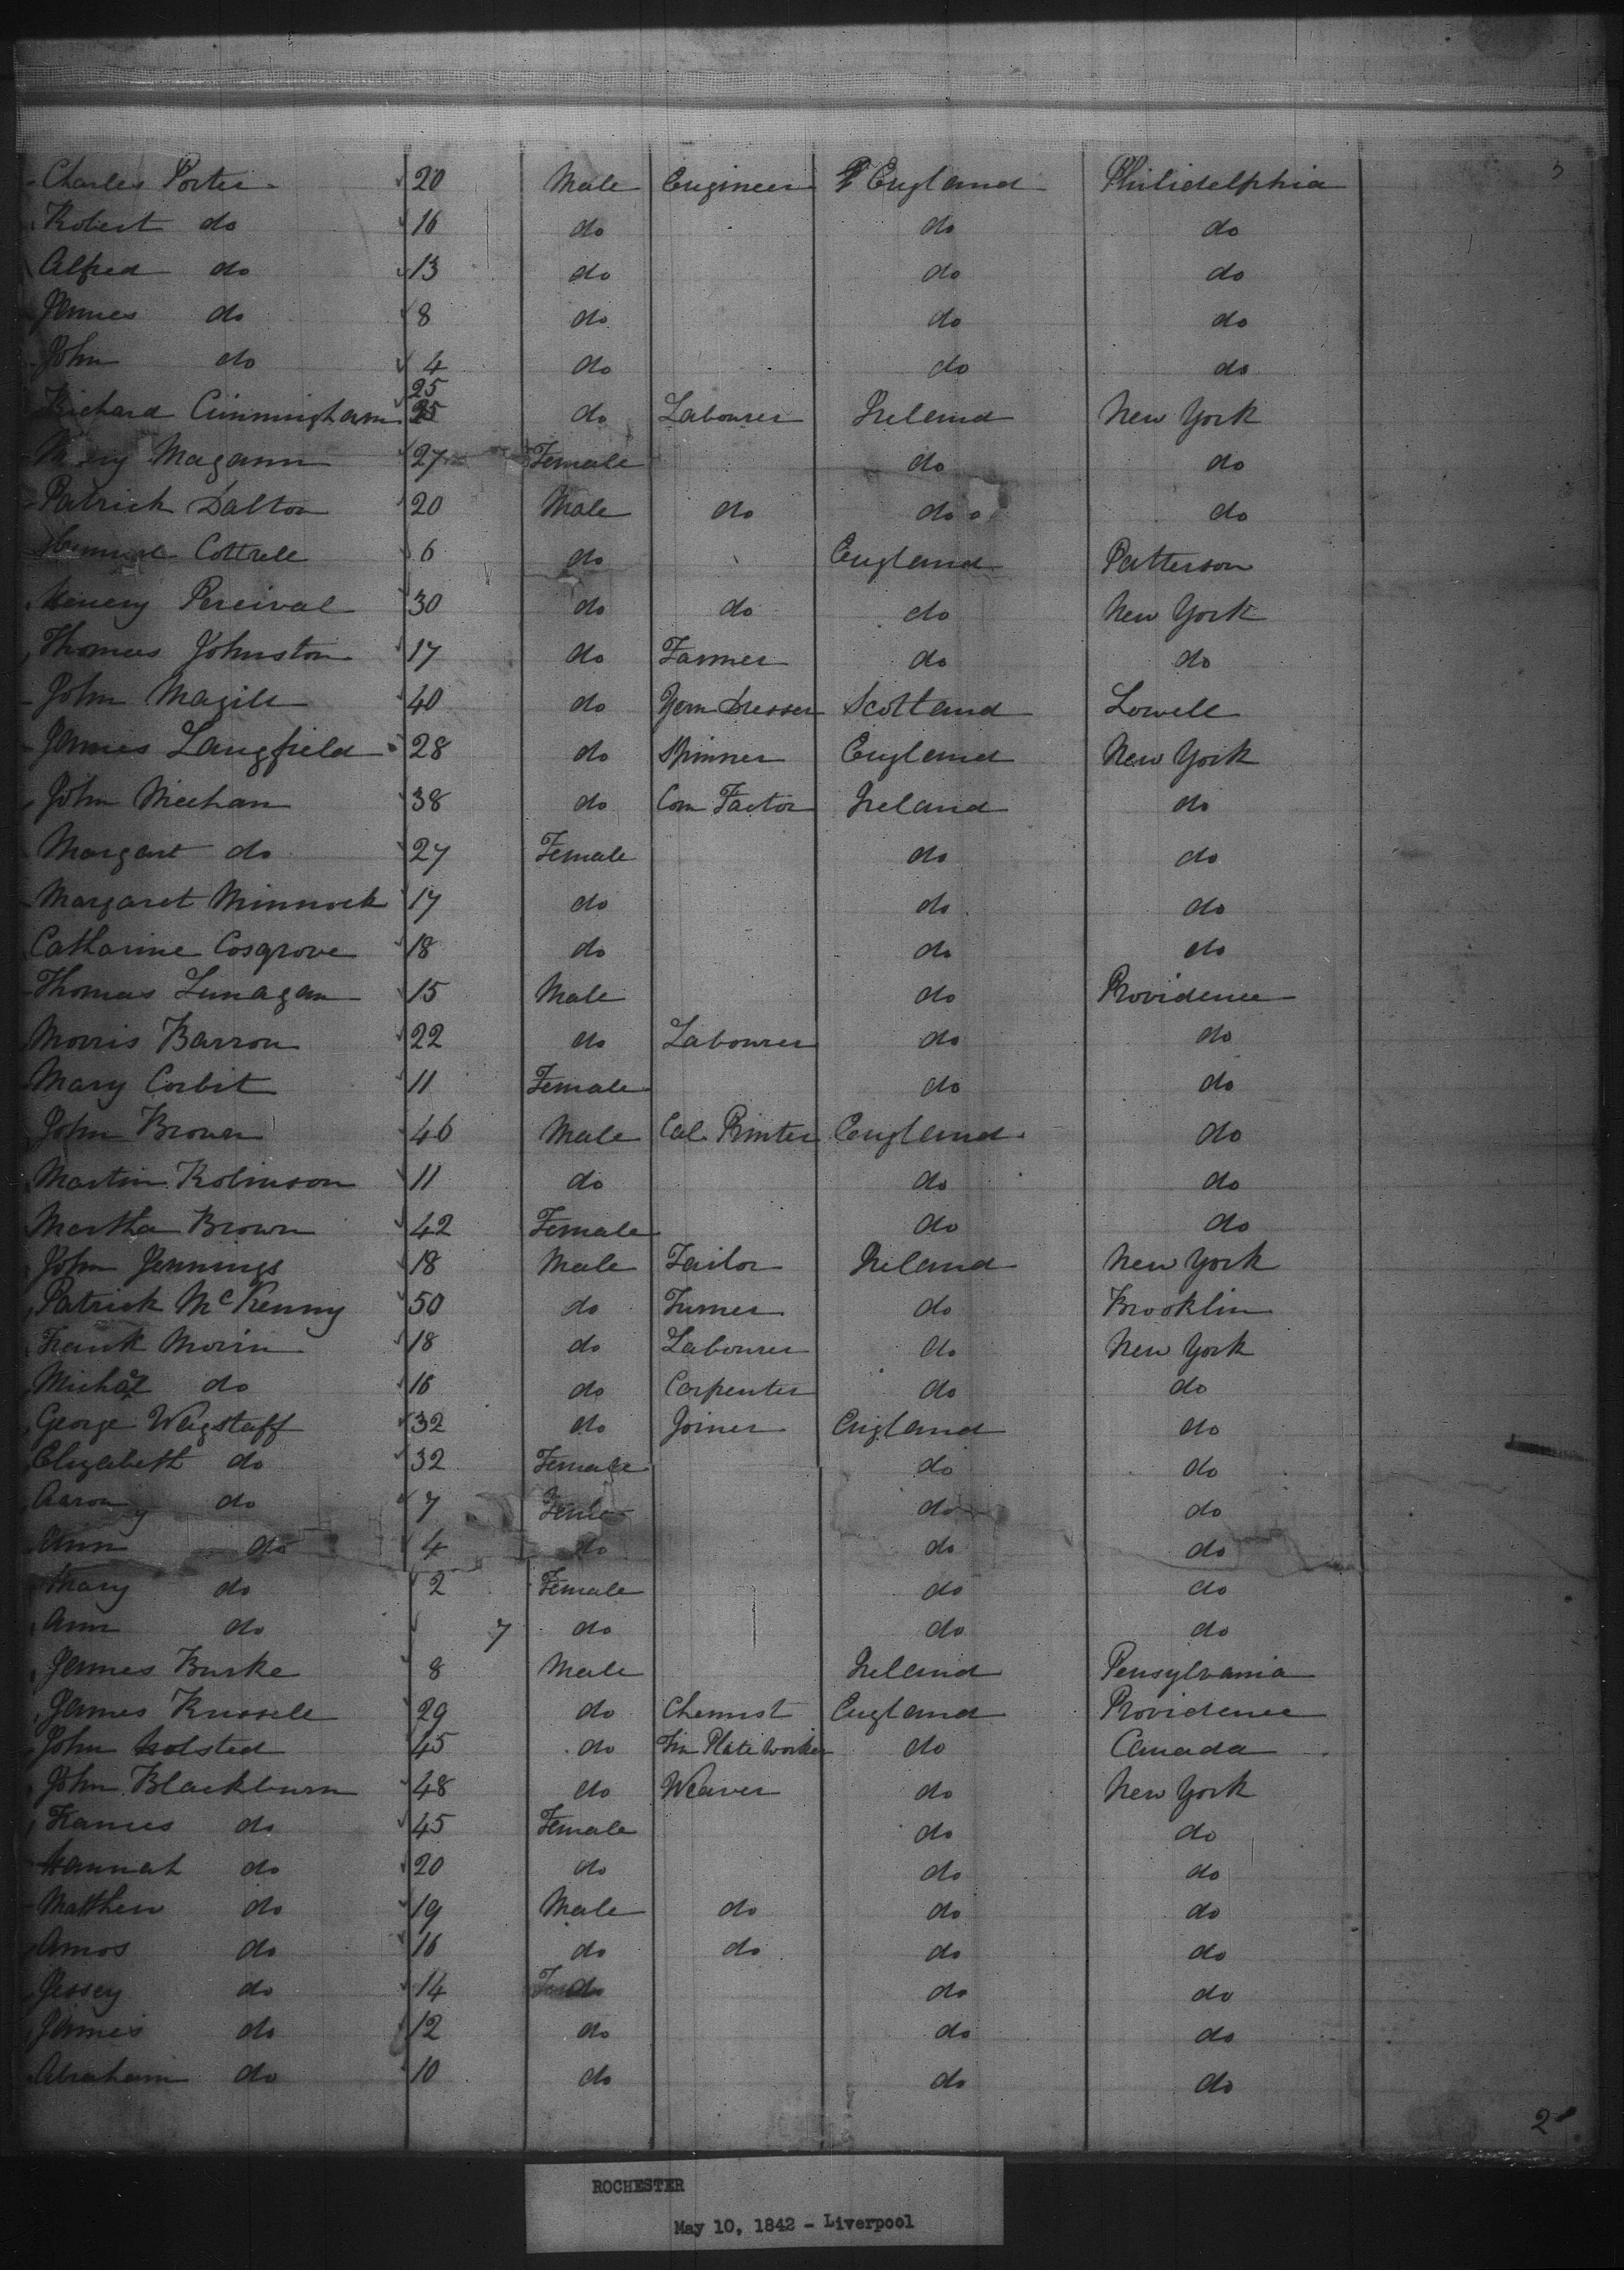 Charles Porter 20 Male Engineer England Philidelphia
Robert do 16 do do do
Alfred do 13 do do do
James do 8 do do do
John do 4 do do do
25
Richard Cunningham 25 do Labourer Ireland New York
Mary Magann 27 Female do do
Patrick Dalton 20 Male do do do
Cottrell 6 do England Patterson
Henery Percival 30 do do do New York
Thomas Johnston 17 do Farmer do do
John Magill 40 do Yarn Dresser Scotland Lowell
James Langfield 28 do Spinner England New York
John Meehan 38 do Corn Factor Ireland do
Margart do 27 Female do do
Margaret Minnock 17 do do do
Catharine Cosgrove 18 do do do
Thomas Lunagan 15 Male do Providence
Morris Barron 22 do Labourer do do
Mary Corbit 11 Female do do
John Brown 46 Male Cal Printer England do
Martin Robinson 11 do do do
Martha Brown 42 Female do do
John Jennings 18 Male Tailor Ireland New York
Patrick McKenny 50 do Turner do Brooklin
Frank Morin 18 do Labourer do New York
Michal do 16 do Carpenter do do
George Wagstaff 32 do Joiner England do
Elizabeth do 32 Female do do
Aaron do 7 do do
Ann do 4 do do do
Mary do 2 Female do do
Ann do 7 do do do
James Burke 8 Male Ireland Pensylvania
James Russell 29 do Chemist England Providence
John Holsted 45 do Tin Plate Worker do Canada
John Blackburn 48 do Weaver do New York
Frances do 45 Female do do
Hannah do 20 do do do
Matthew do 19 Male do do do
Amos do 16 do do do do
Jessey do 14 do do do
James do 12 do do do
Abraham do 10 do do do
2
ROCHESTER
May 10, 1842 - Liverpool